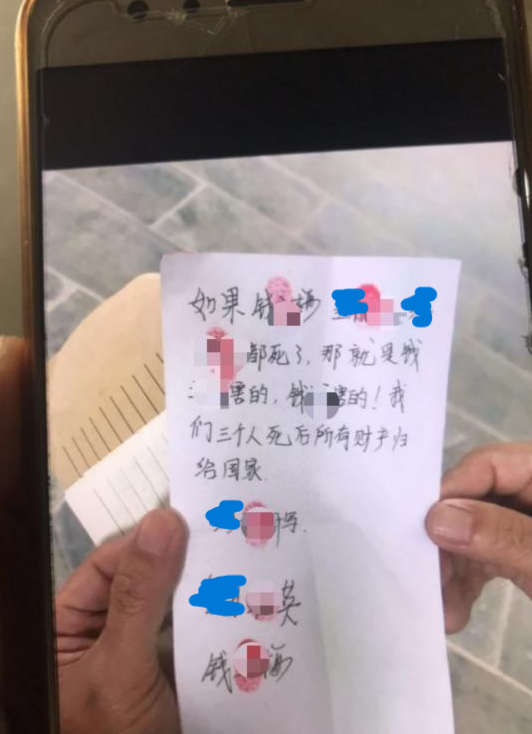 如果钱 娟
都死了,那就是钱
害的,钱 害的!我
们三个人死后所有财产归
给国家
英
钱